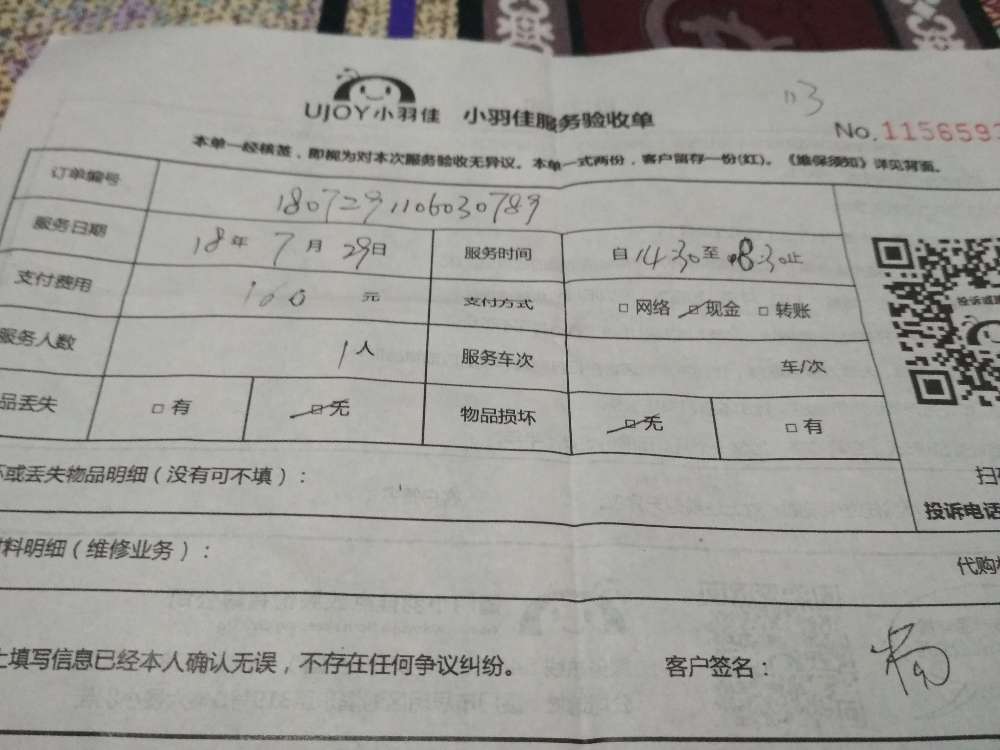 113
UJOY小羽佳 小羽佳服务验收单
No.1156593
本单一经核签，即视为对本次服务验收无异议。本单一式两份，客户留存一份(红)。《维保须知》详见背面。
订单编号 1807291106030789
服务日期 18年 7月 29日 服务时间 自14:30至18:30止
支付费用 160 元 支付方式 □网络 □现金 □转账
服务人数 1人 服务车次 车/次
品丢失 □有 □无 物品损坏 □无 □有
投诉或
坏或丢失物品明细（没有可不填）： 扫
投诉电话
料明细（维修业务）： 代购
上填写信息已经本人确认无误，不存在任何争议纠纷。 客户签名：